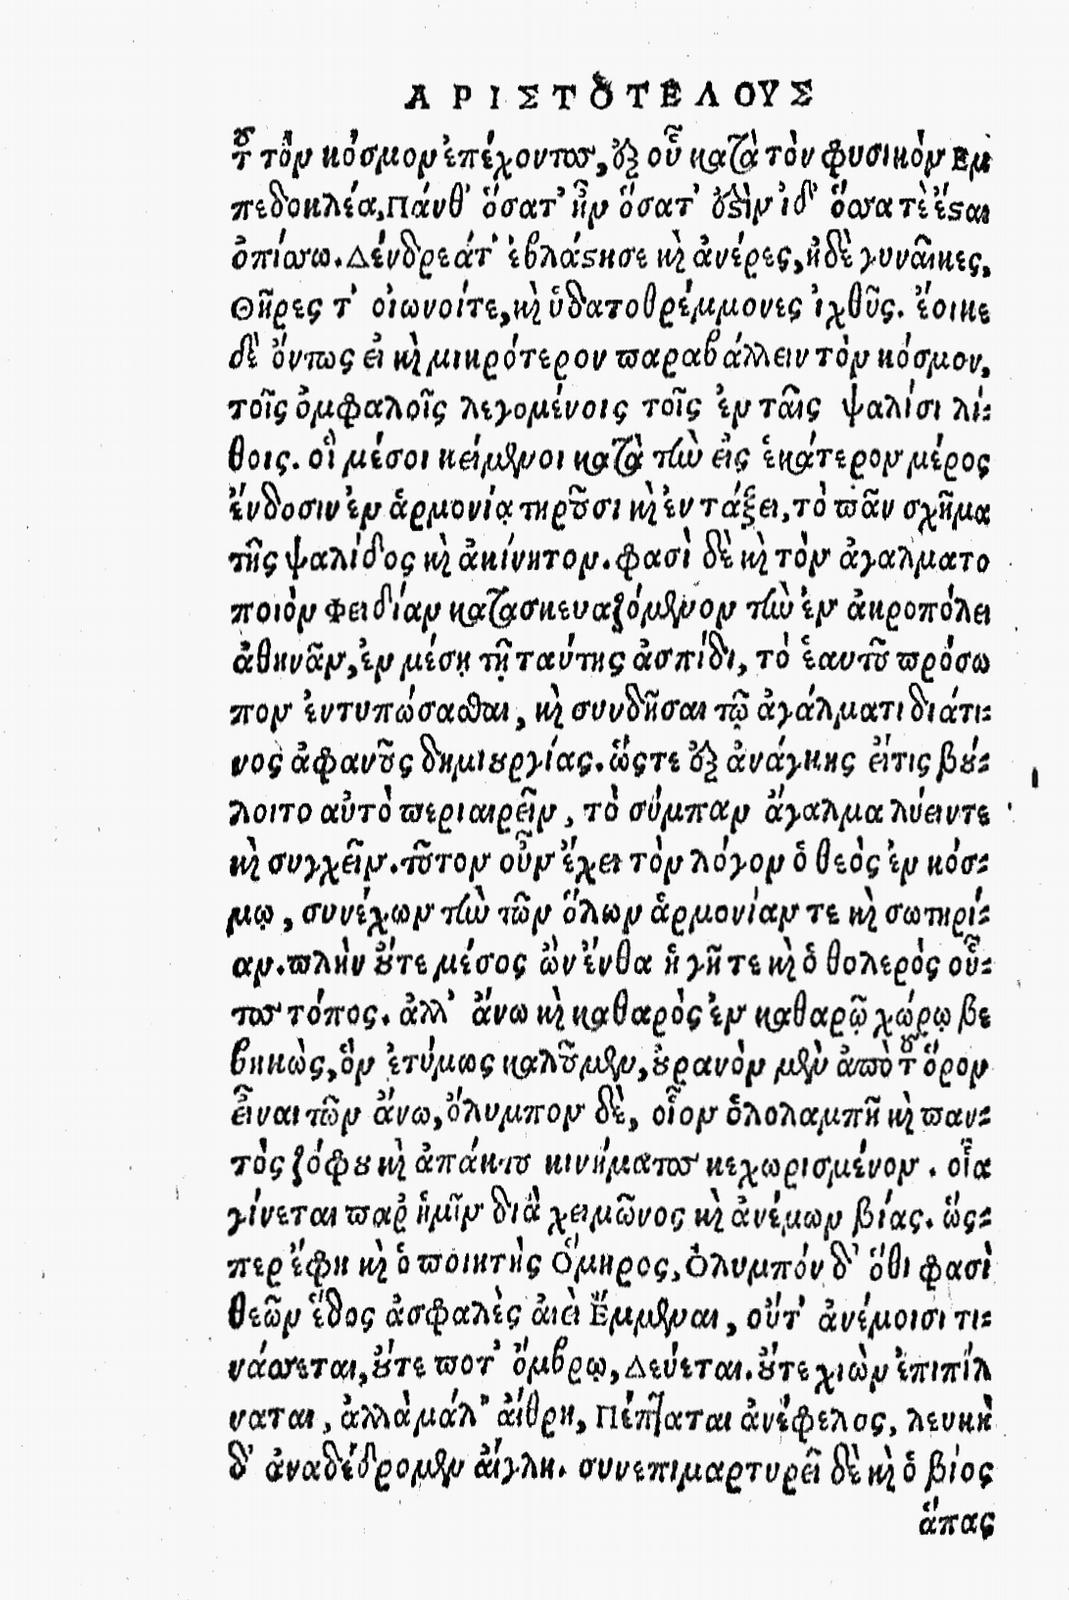 ΑΡΙΣΤΟΤΕΛΟΥΣ
τοῦ τὸν κόσμον ἐπέχοντος, ἐξ οὗ κατὰ τὸν φυσικὸν Ἐμ
πεδοκλέα, Πάνθ' ὅσατ' ἦν ὅσατ' ὀστὶν ἰδ' ὅσσα τὲ ἔσαι
ὀπίσσω. Δένδρεάτ' ἐβλάστησε καὶ ἀνέρες, ἠδὲ γυναῖκες,
Θῆρες τ' οἰωνοίτε, καὶ ὑδατοθρέμμονες ἰχθῦς. ἔοικε
δὲ ὄντως εἰ καὶ μικρότερον παραβάλλειν τὸν κόσμον,
τοῖς ὀμφαλοῖς λεγομένοις τοῖς ἐν ταῖς ψαλίσι λί-
θοις. οἳ μέσοι κείμενοι κατὰ τὴν εἰς ἑκάτερον μέρος
ἔνδοσιν ἐν ἁρμονίᾳ τηροῦσι καὶ ἐν τάξει, τὸ πᾶν σχῆμα
τῆς ψαλίδος καὶ ἀκίνητον. φασὶ δὲ καὶ τὸν ἀγαλματο
ποιὸν Φειδίαν κατασκευαζόμενον τὴν ἐν ἀκροπόλει
ἀθηνᾶν, ἐν μέσῃ τῇ ταύτης ἀσπίδι, τὸ ἑαυτοῦ πρόσω
πον ἐντυπώσασθαι, καὶ συνδῆσαι τῷ ἀγάλματι διάτι-
νος ἀφανοῦς δημιουργίας. ὥςτε ἐξ ἀνάγκης εἴτις βού-
λοιτο αὐτὸ περιαιρεῖν, τὸ σύμπαν ἄγαλμα λύειντε
καὶ συγχεῖν. τοῦτον οὖν ἔχει τὸν λόγον ὁ θεὸς ἐν κόσ-
μῳ, συνέχων τὴν τῶν ὅλων ἁρμονίαν τε καὶ σωτηρί-
αν. πλὴν οὔτε μέσος ὢν ἔνθα ἡ γῆ τε καὶ ὁ θολερὸς οὗ-
τος τόπος. ἀλλ' ἄνω καὶ καθαρὸς ἐν καθαρῷ χώρῳ βε
βηκὼς, ὃν ἐτύμως καλοῦμεν, οὐρανὸν μὲν ἀπὸ τοῦ ὅρον
εἶναι τῶν ἄνω, ὄλυμπον δὲ, οἷον ὁλολαμπῆ καὶ παν-
τὸς ζόφου καὶ ἀπάκτου κινήματος κεχωρισμένον. οἷα
γίνεται παρ' ἡμῖν διὰ χειμῶνος καὶ ἀνέμων βίας. ὥς-
περ ἔφη καὶ ὁ ποιητὴς Ὅμηρος, Ὀλυμπόν δ' ὅθι φασὶ
θεῶν ἕδος ἀσφαλὲς αἰεὶ Ἔμμεναι, οὔτ' ἀνέμοισι τι-
νάσσεται, οὔτε ποτ' ὄμβρῳ, Δεύεται. οὔτε χιὼν ἐπιπίλ
ναται, ἀλλὰ μάλ' αἴθρη, Πέπταται ἀνέφελος, λευκὴ
δ' ἀναδέδρομεν αἴγλη. συνεπιμαρτυρεῖ δὲ καὶ ὁ βίος
ἅπας